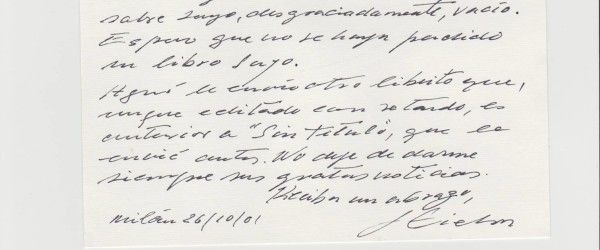 sobre suyo, desgraciadamente, vacío.
Espero que no se haya perdido
un libro suyo.
Aquí le envío otro librito que,
aunque editado con retardo, es
anterior a "Sin título", que le
envié antes. No deje de darme
siempre sus gratas noticias.
Reciba un abrazo,
Milán 26/10/01